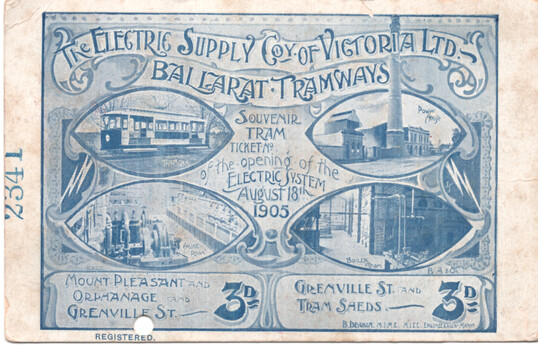 THE ELECTRIC SUPPLY COY. OF VICTORIA LTD.
BALLARAT · TRAMWAYS
SOUVENIR
TRAM
TICKET No
of the opening of the
ELECTRIC SYSTEM
AUGUST 18TH
1905
POWER HOUSE
ENGINE ROOM
BOILER ROOM
2341
MOUNT PLEASANT AND
ORPHANAGE AND
GRENVILLE ST.
3D
GRENVILLE ST. AND
TRAM SHEDS.
3D
REGISTERED.